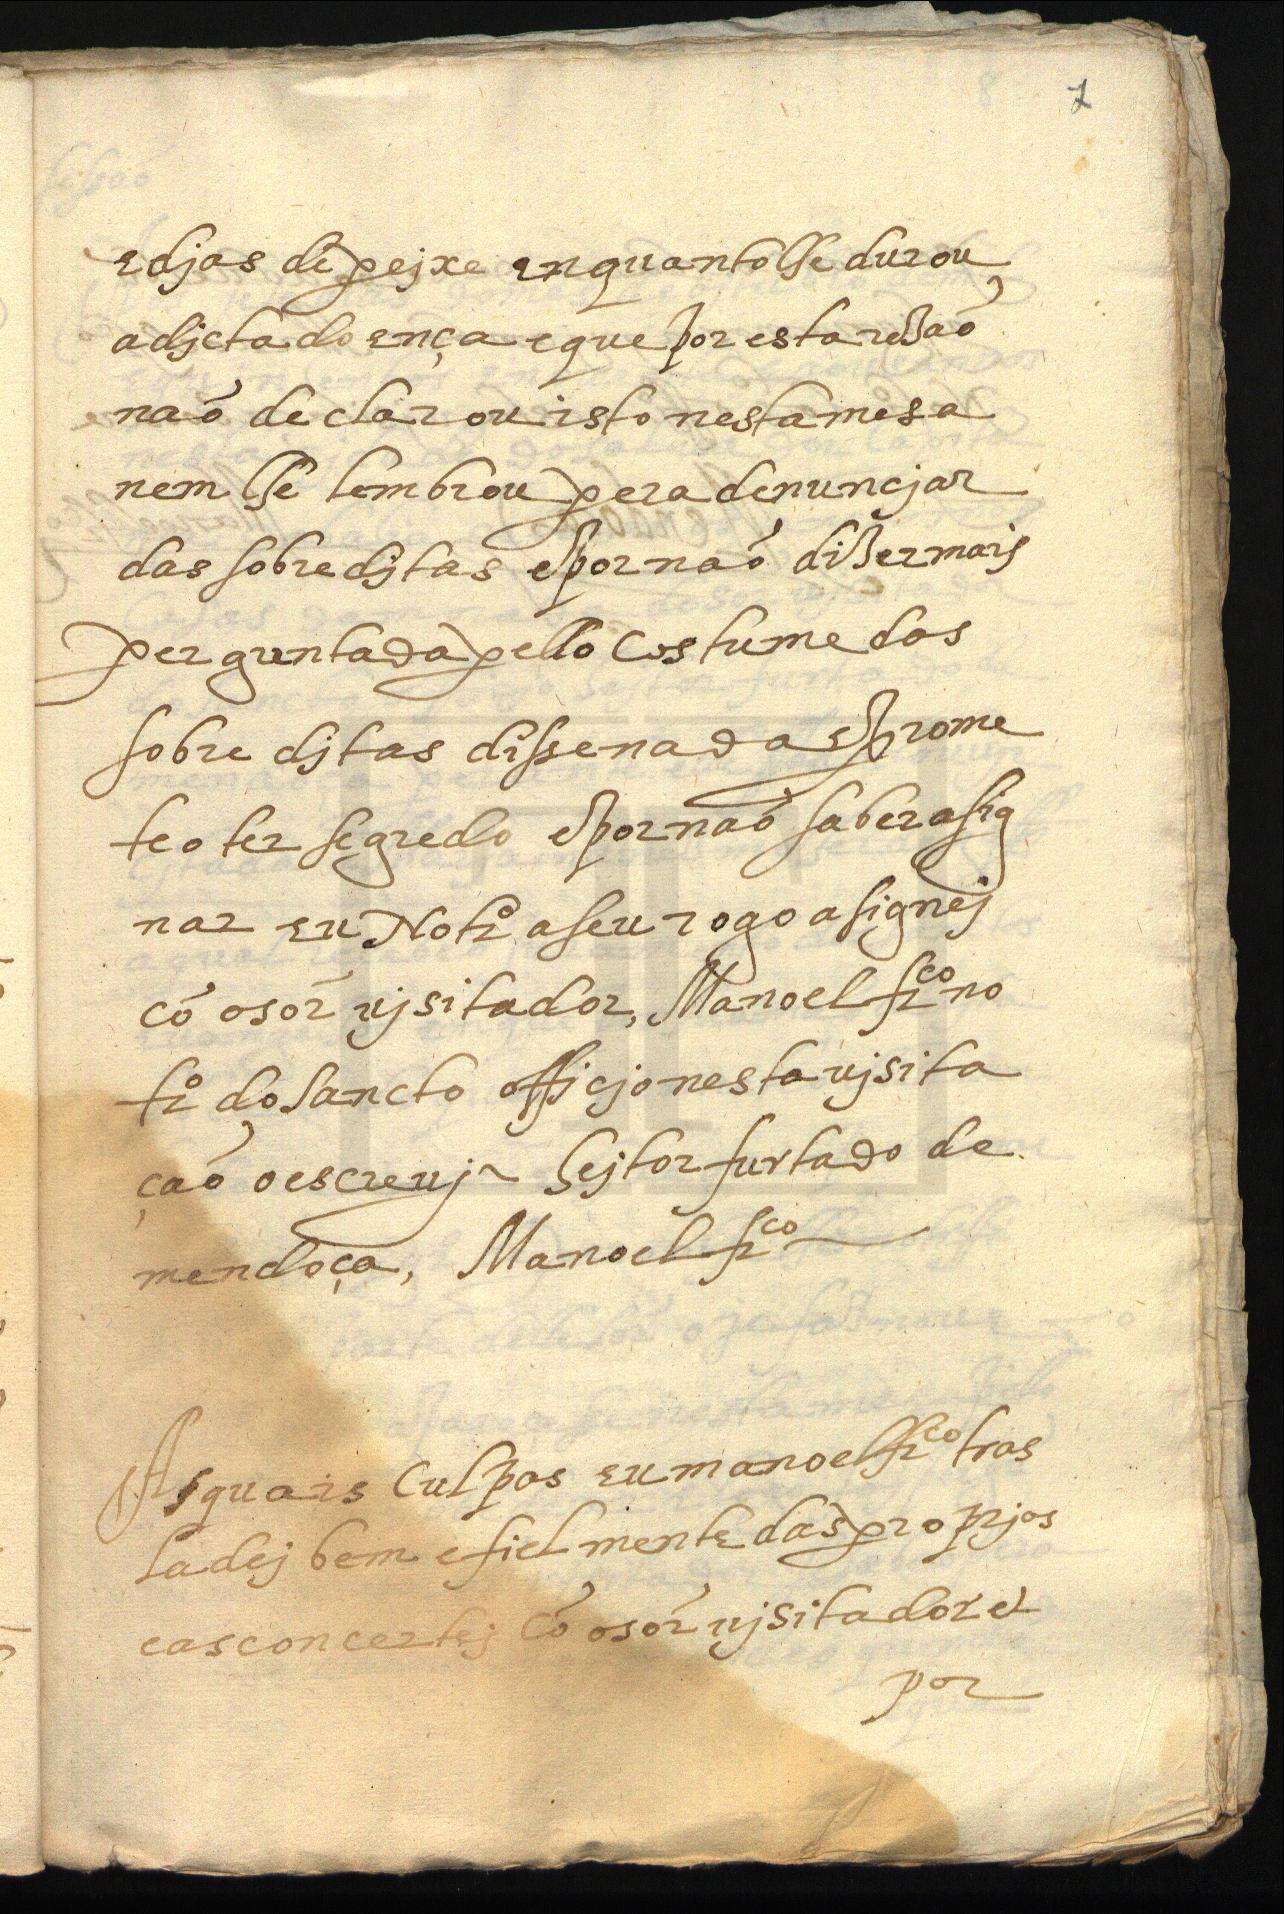 7
e djas de pejxe enquanto lhe durou
a djcta doença e que por esta resaõ
naõ declarou isto nesta mesa
nem lhe lembrou pera denuncjar
das sobredjtas e por naõ dizer mais
perguntada pello costume das
sobre djtas disse nada e prome
teo ter segredo e por naõ saber asig
nar eu Notrº a seu rogo asignej
cõ o sõr vjsitador, Manoel frco no
trº do sancto officjo nesta vjsita
çaõ o escreuj ~ Hejtor furtado de
mendoça, Manoel frco
As quais Culpas eu manoel frco tras
ladej bem e fielmente das proprjas
e as concertej cõ o sõr vjsitador et
por